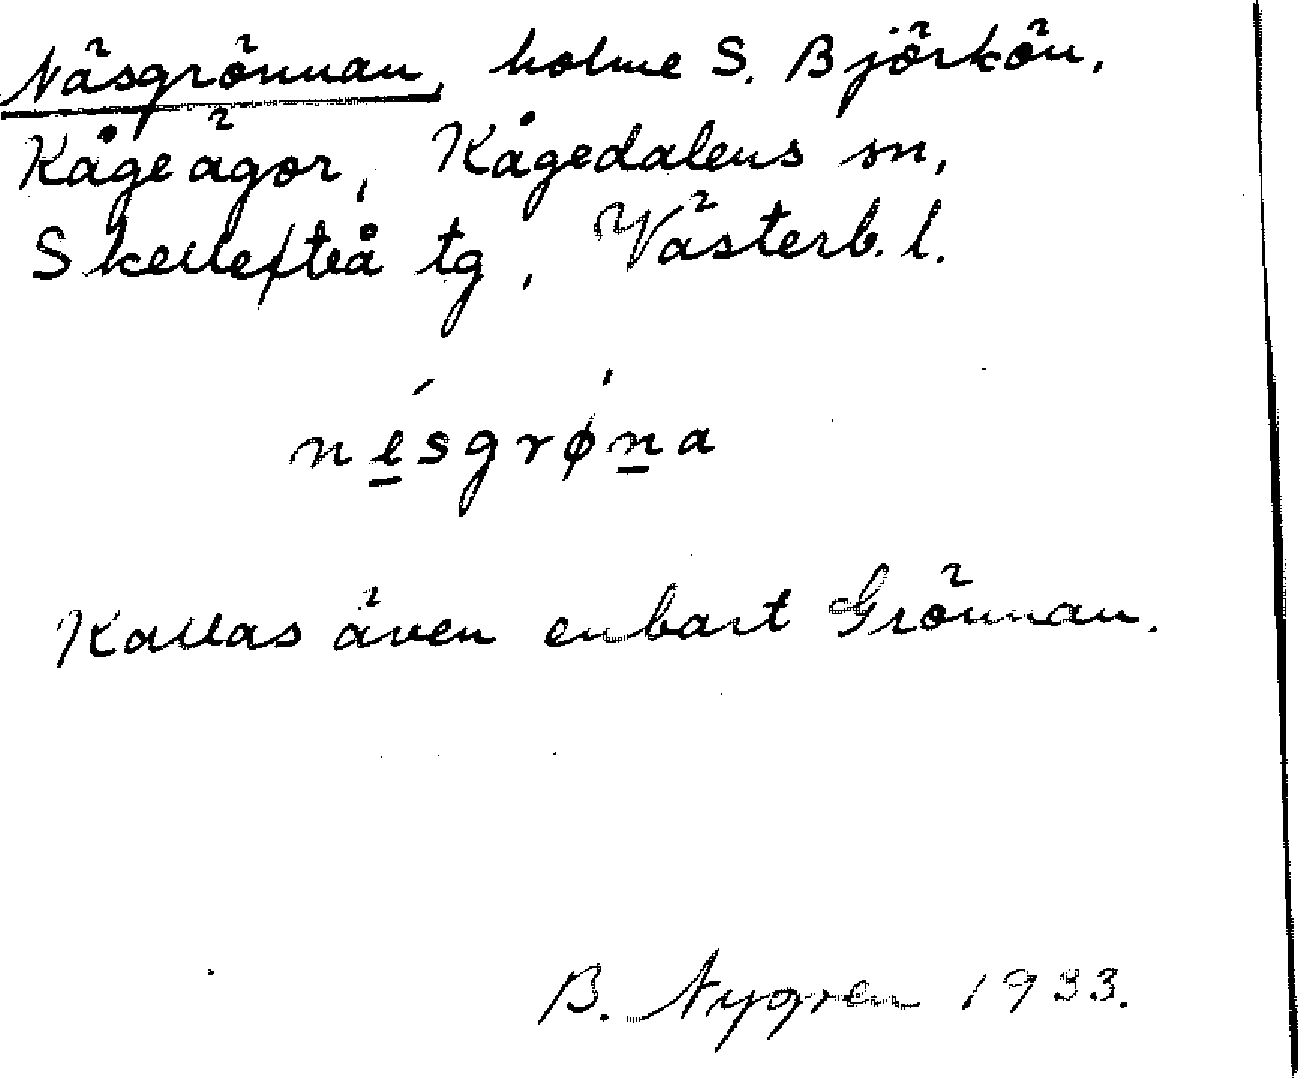 Näsgrönnan, holme S. Björkön,
Kåge ägor, Kågedalens sn,
Skellefteå tg, Västerb. l.
nésgrǿna
Kallas även enbart Grönnan.
B. Nygren 1933.